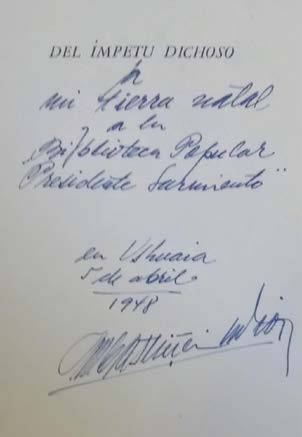 DEL ÍMPETU DICHOSO
a
mi tierra natal
a la
"Biblioteca Popular
Presidente Sarmiento"
en Ushuaia
5 de abril
1948